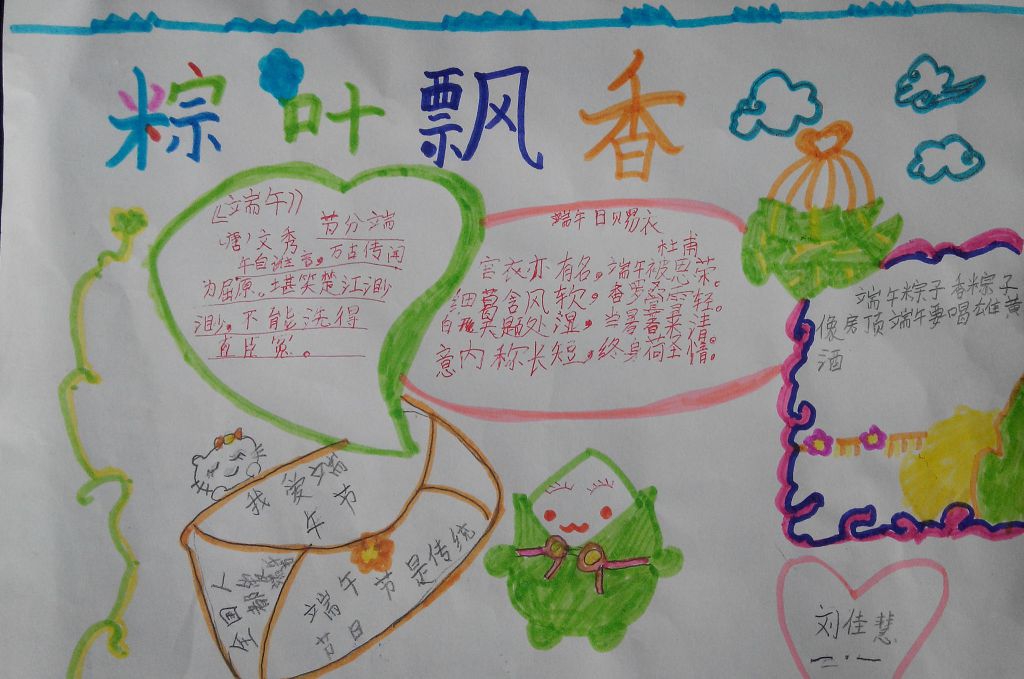 粽叶飘香
《端午》
(唐)文秀 节分端
午自谁言,万古传闻
为屈原。堪笑楚江渺
渺,不能洗得
直臣冤。
端午日赐衣
杜甫
宫衣亦有名,端午被恩荣。
细葛含风软,香罗叠雪轻。
自天题处湿,当暑著来清。
意内称长短,终身荷圣情。
端午粽子香粽子
像房顶端午要喝雄黄
酒
我爱端
午节
全国人
都
端午节是传统
节日
刘佳慧
二·一